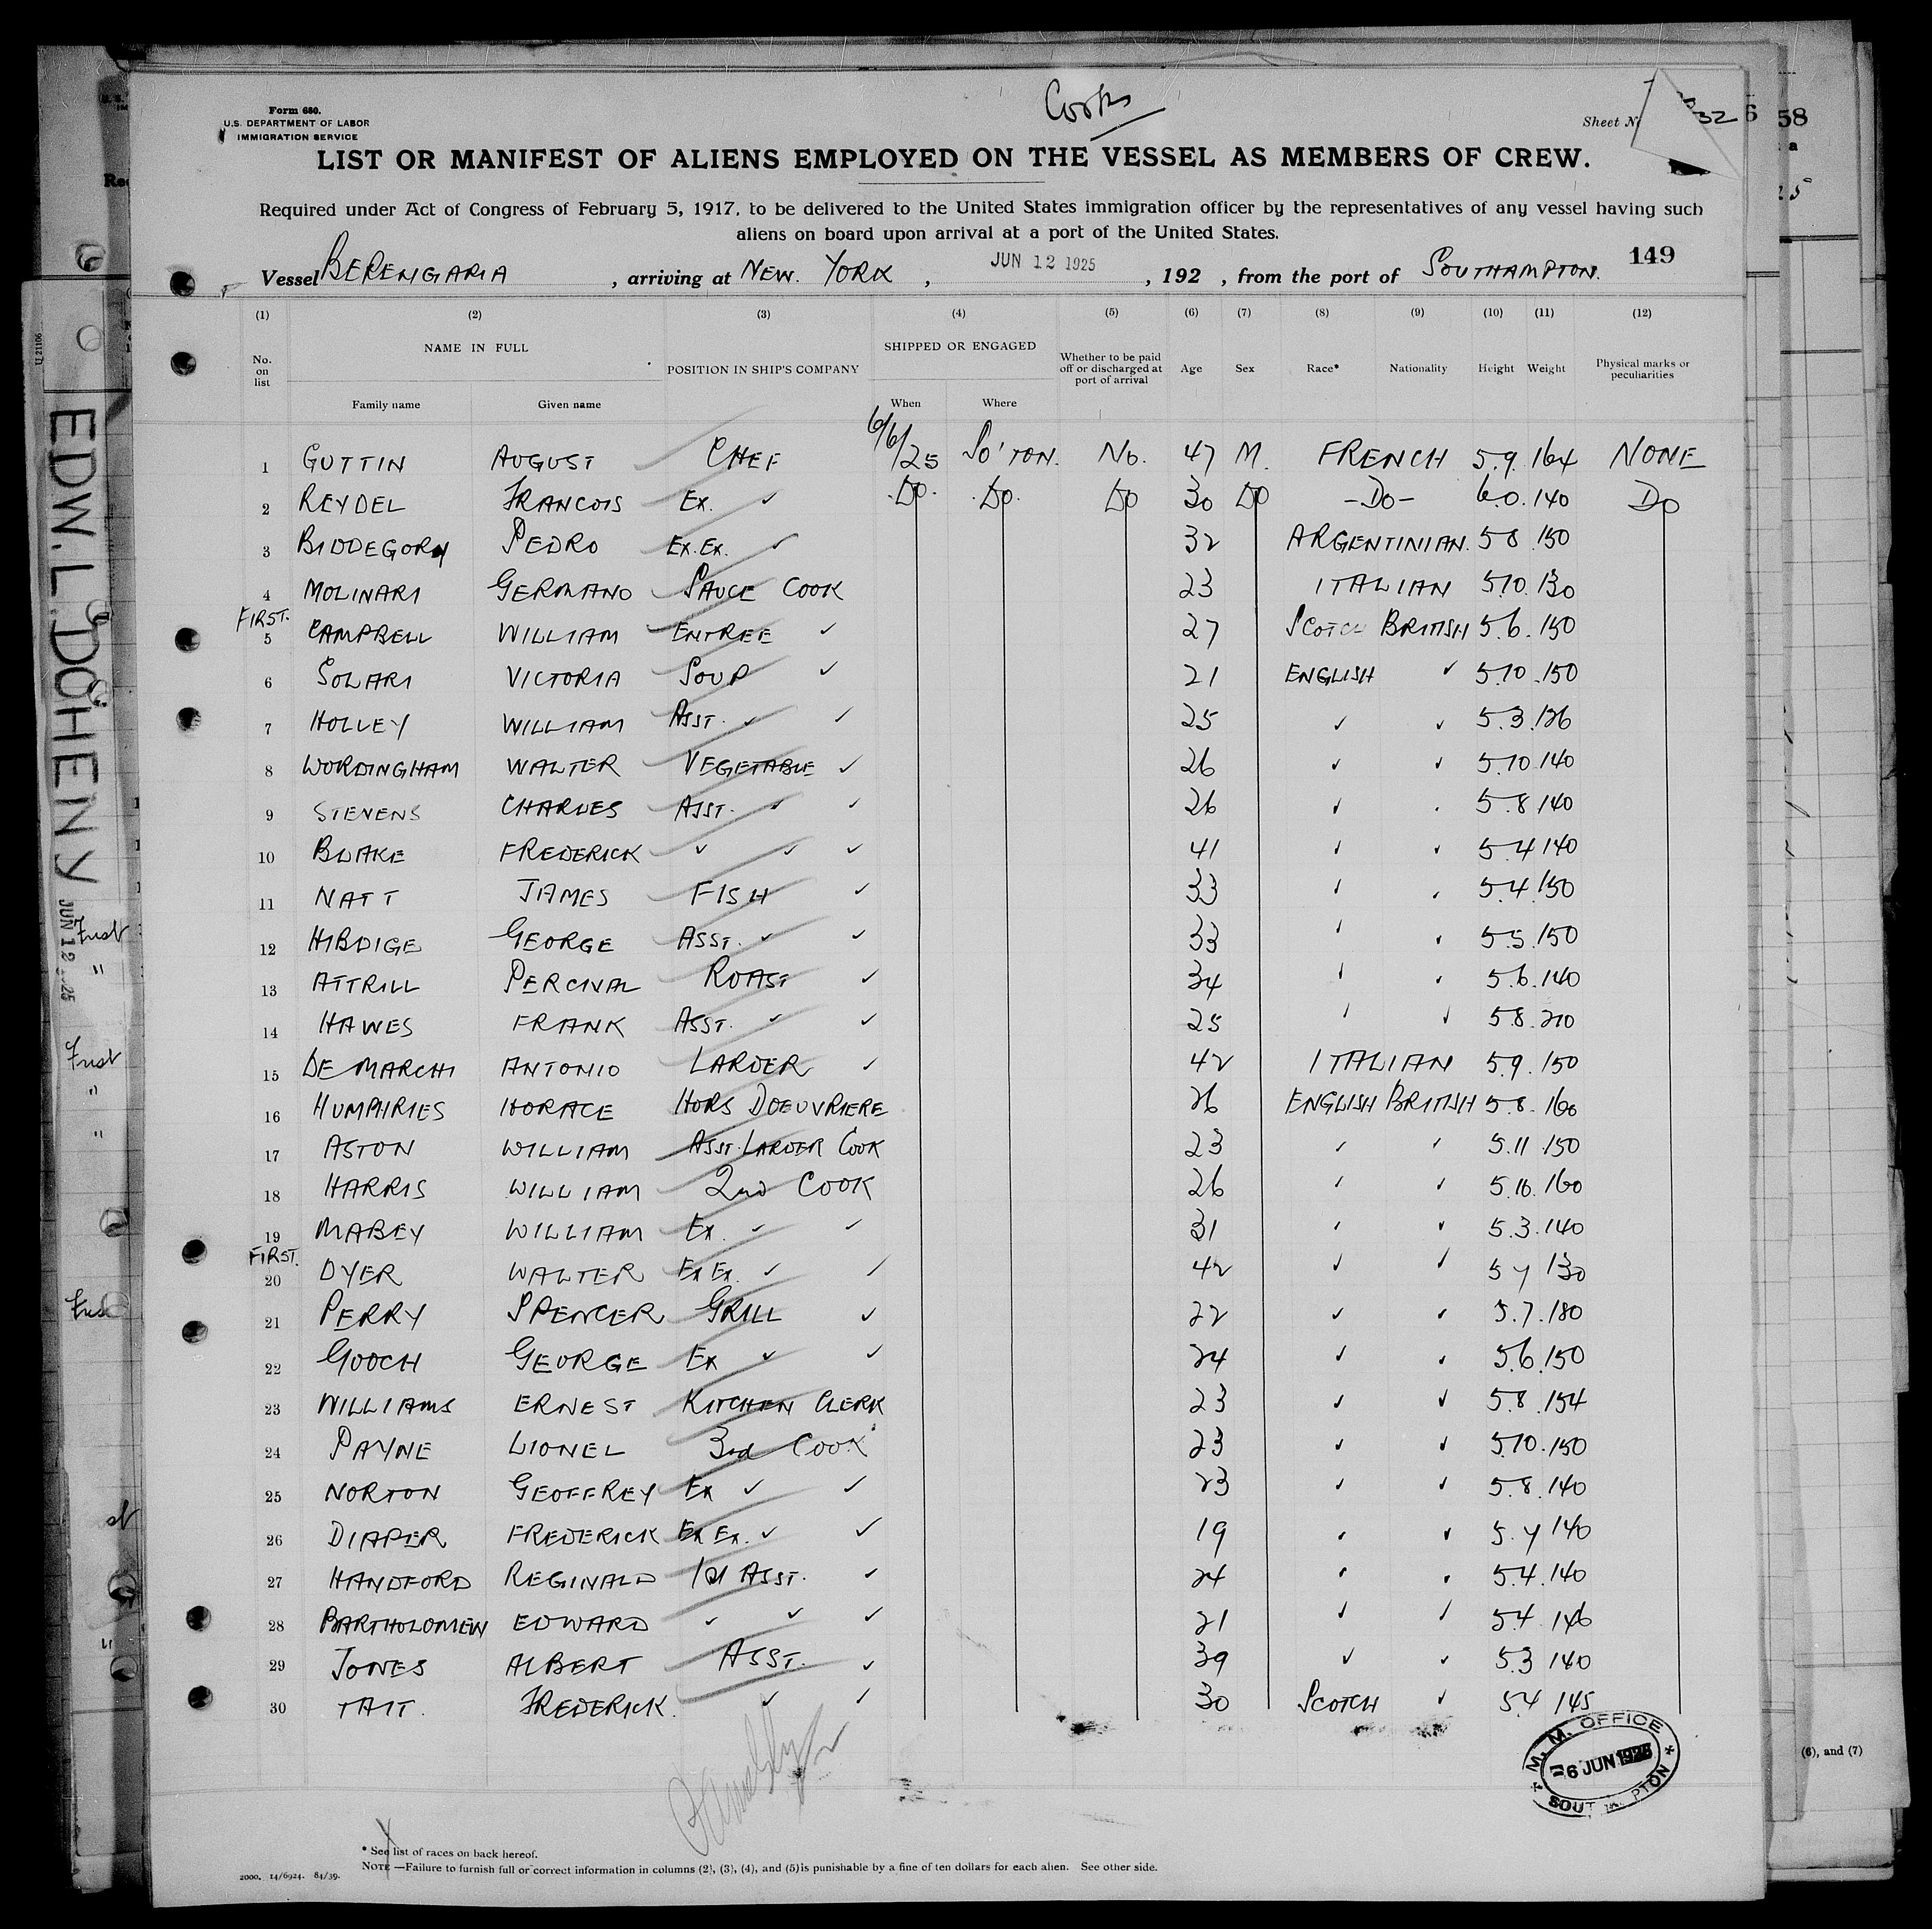 Cooks
Form 680.
U.S. DEPARTMENT OF LABOR
IMMIGRATION SERVICE
Sheet N 32
LIST OR MANIFEST OF ALIENS EMPLOYED ON THE VESSEL AS MEMBERS OF CREW.
Required under Act of Congress of February 5, 1917, to be delivered to the United States immigration officer by the representatives of any vessel having such
aliens on board upon arrival at a port of the United States.
149
Vessel BERENGARIA, arriving at NEW. YORK, JUN 12 1925, 192 , from the port of SOUTHAMPTON.
(1) (2) (3) (4) (5) (6) (7) (8) (9) (10) (11) (12)
No. on list NAME IN FULL POSITION IN SHIP'S COMPANY SHIPPED OR ENGAGED Whether to be paid off or discharged at port of arrival Age Sex Race* Nationality Height Weight Physical marks or peculiarities
Family name Given name When Where
1 GUTTIN AUGUST CHEF 6/6/25 SO'TON. No. 47 M. FRENCH 5.9. 164 NONE
2 REYDEL FRANCOIS Ex. ✓ Do. Do. Do 30 Do -Do- 6.0. 140 Do
3 BIDDEGORY PEDRO Ex. Ex. ✓ 32 ARGENTINIAN. 5 8 150
4 MOLINARI GERMANO SAUCE COOK 23 ITALIAN 5.10. 130
FIRST.
5 CAMPBELL WILLIAM ENTREE ✓ 27 SCOTCH BRITISH 5.6. 150
6 SOLARI VICTORIA SOUP ✓ 21 ENGLISH ✓ 5.10. 150
7 HOLLEY WILLIAM ASST. ✓ ✓ 25 ✓ ✓ 5.3. 126
8 WORDINGHAM WALTER VEGETABLE ✓ 26 ✓ ✓ 5.10 140
9 STEVENS CHARLES ASST. ✓ ✓ 26 ✓ ✓ 5.8 140
10 BLAKE FREDERICK ✓ ✓ ✓ 41 ✓ ✓ 5.4 140
11 NATT JAMES FISH ✓ 33 ✓ ✓ 5.4. 150
12 HIBDIGE GEORGE ASST. ✓ ✓ 33 ✓ ✓ 5.5. 150
13 ATTRILL PERCIVAL ROAST ✓ 34 ✓ ✓ 5.6. 140
14 HAWES FRANK ASST. ✓ ✓ 25 ✓ ✓ 5.8. 210
15 DE MARCHI ANTONIO LARDER ✓ 42 ITALIAN 5.9. 150
16 HUMPHRIES HORACE HORS DOEUVRIERE 26 ENGLISH BRITISH 5.8. 160
17 ASTON WILLIAM ASST. LARDER COOK 23 ✓ ✓ 5.11. 150
18 HARRIS WILLIAM 2nd COOK 26 ✓ ✓ 5.10. 160
19 MABEY WILLIAM Ex. ✓ ✓ 31 ✓ ✓ 5.3. 140
FIRST.
20 DYER WALTER Ex Ex. ✓ ✓ 42 ✓ ✓ 5 7 130
21 PERRY SPENCER GRILL ✓ 22 ✓ ✓ 5.7. 180
22 GOOCH GEORGE Ex ✓ ✓ 24 ✓ ✓ 5.6. 150
23 WILLIAMS ERNEST KITCHEN CLERK 23 ✓ ✓ 5.8. 154
24 PAYNE LIONEL 3rd COOK 23 ✓ ✓ 5.10. 150
25 NORTON GEOFFREY Ex ✓ ✓ 23 ✓ ✓ 5.8. 140
26 DIAPER FREDERICK Ex Ex. ✓ ✓ 19 ✓ ✓ 5.7 140
27 HANDFORD REGINALD 1st ASST. ✓ 24 ✓ ✓ 5.4. 140
28 BARTHOLOMEW EDWARD ✓ ✓ ✓ 21 ✓ ✓ 5.4 146
29 JONES ALBERT ASST. ✓ 39 ✓ ✓ 5.3 140
30 TAIT. FREDERICK. ✓ ✓ 30 SCOTCH ✓ 5.4 145
M. M. OFFICE
6 JUN 1925
SOUT PTON
* See list of races on back hereof.
NOTE—Failure to furnish full or correct information in columns (2), (3), (4), and (5) is punishable by a fine of ten dollars for each alien. See other side.
2000. 14/6924. 84/39.
EDW. L. DOHENY
JUN 12 25
U 21106
First
"
First
"
"
58
(6), and (7)